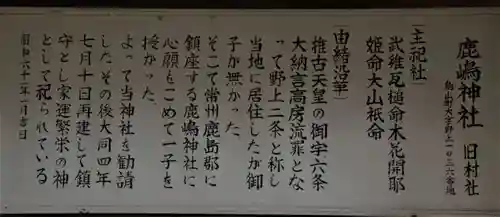 鹿嶋神社 旧村社
鳥山町大字野上一〇三六番地
[主祀社]
武雍瓦槌命木花開耶
姫命大山祇命
[由緒沿革]
推古天皇の御宇六条
大納言高房流罪とな
って野上二条と称し
当地に居住したが御
子が無かった。
そこで常州鹿島郡に
鎮座する鹿嶋神社に
心願をこめて一子を
授かった。
よって当神社を勧請
したその後大同四年
七月十日再建して鎮
守とし家運繁栄の神
として祀られている
昭和六十二年一月吉日